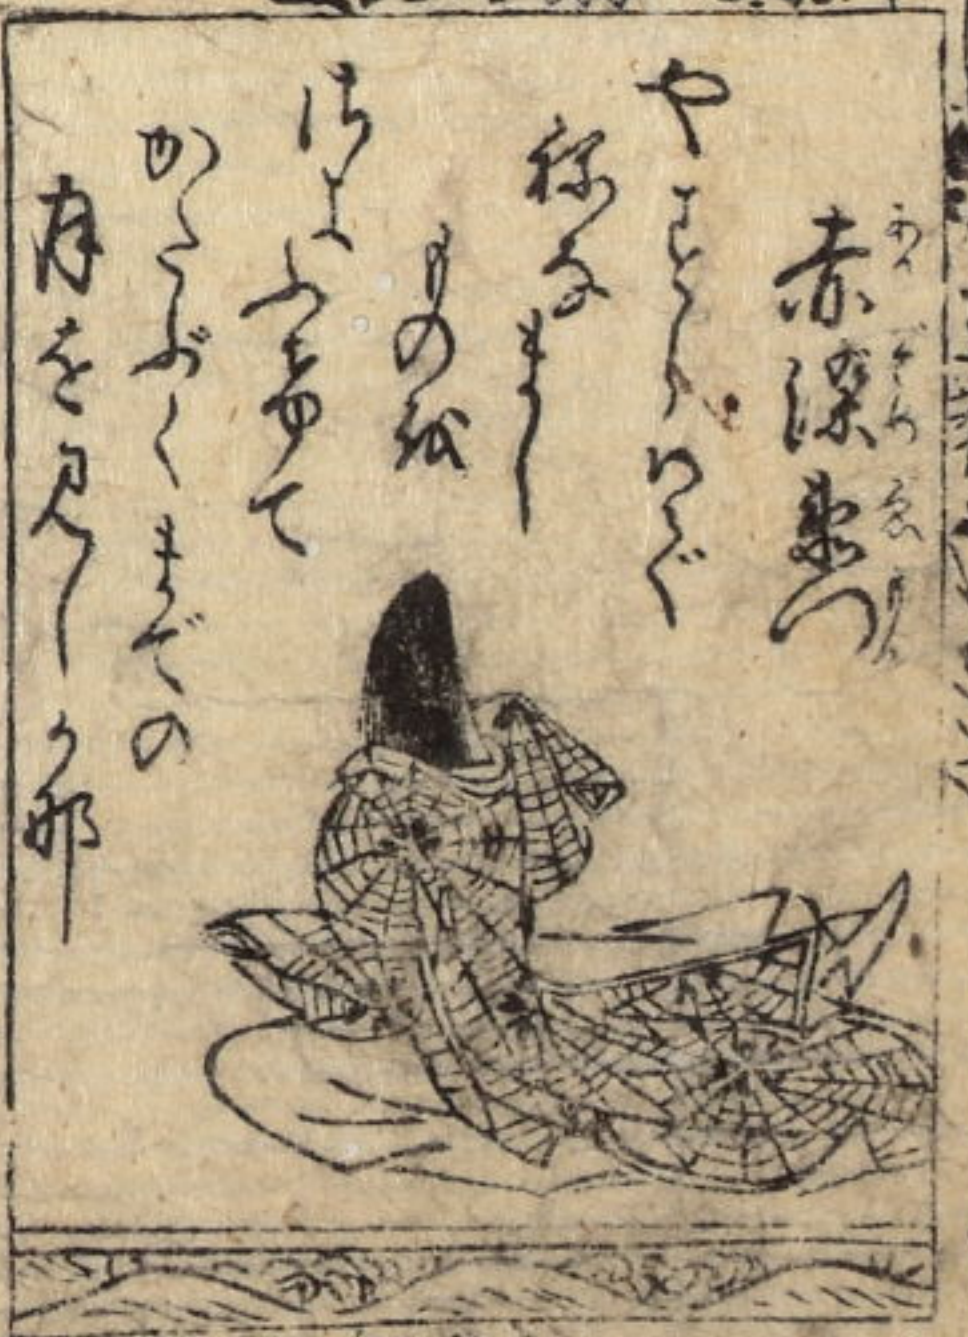 赤染衛門
あかぞめゑもん
やすらはで
ねなまし
ものを
さよ
ふけて
かたぶくまでの
月を見しかな